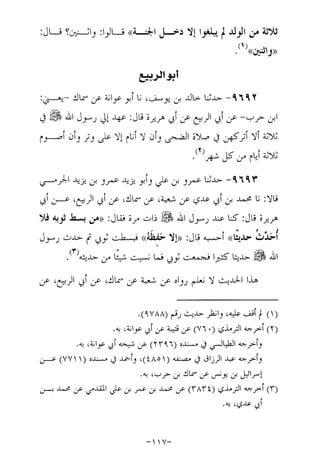 ثلاثة من الولد لم يبلغوا إلا دخـــل الجنــــة» قـــالوا: واثــنين؟ قـــال:
«واثنين»(١).
أبو الربيع
٩٦٩٢- حدثنا خالد بن يوسف، نا أبو عوانة عن سماك -يعـــني:
ابن حرب- عن أبي الربيع عن أبي هريرة قال: عهد إلي رسول الله ﷺ في
ثلاثة ألا أتركهن في صلاة الضحى وأن لا أنام إلا على وتر وأن أصـــوم
ثلاثة أيام من كل شهر(٢).
٩٦٩٣- حدثنا عمرو بن علي وأبو يزيد عمرو بن يزيد الجرمـــي
قالا: نا محمد بن أبي عدي عن شعبة، عن سماك، عن أبي الربيع، عـــن أبي
هريرة قال: كنا عند رسول الله ﷺ ذات مرة فقال: «من بسط ثوبه فلا
أُحَدِّثُ حديثًا» أحسبه قال: «إلا حَفِظَهُ» فبسطت ثوبي ثم حدث رسول
الله ﷺ حديثا كثيرا فجمعت ثوبي فما نسيت شيئًا من حديثه(٣).
هذا الحديث لا نعلم رواه عن شعبة عن سماك، عن أبي الربيع، عن
(١) لم أقف عليه، وانظر حديث رقم (٩٧٨٨).
(٢) أخرجه الترمذي (٧٦٠) عن قتيبة عن أبي عوانة، به.
وأخرجه الطيالسي في مسنده (٢٣٩٦) عن شيخه أبي عوانة، به.
وأخرجه عبد الرزاق في مصنفه (٤٨٥١)، وأحمد في مسنده (٧٧١١) عـــن
إسرائيل بن يونس عن سماك بن حرب، به.
(٣) أخرجه الترمذي (٣٨٣٤) عن محمد بن عمر بن علي المقدمي عن محمد بـــن
أبي عدي، به.
-١١٧-